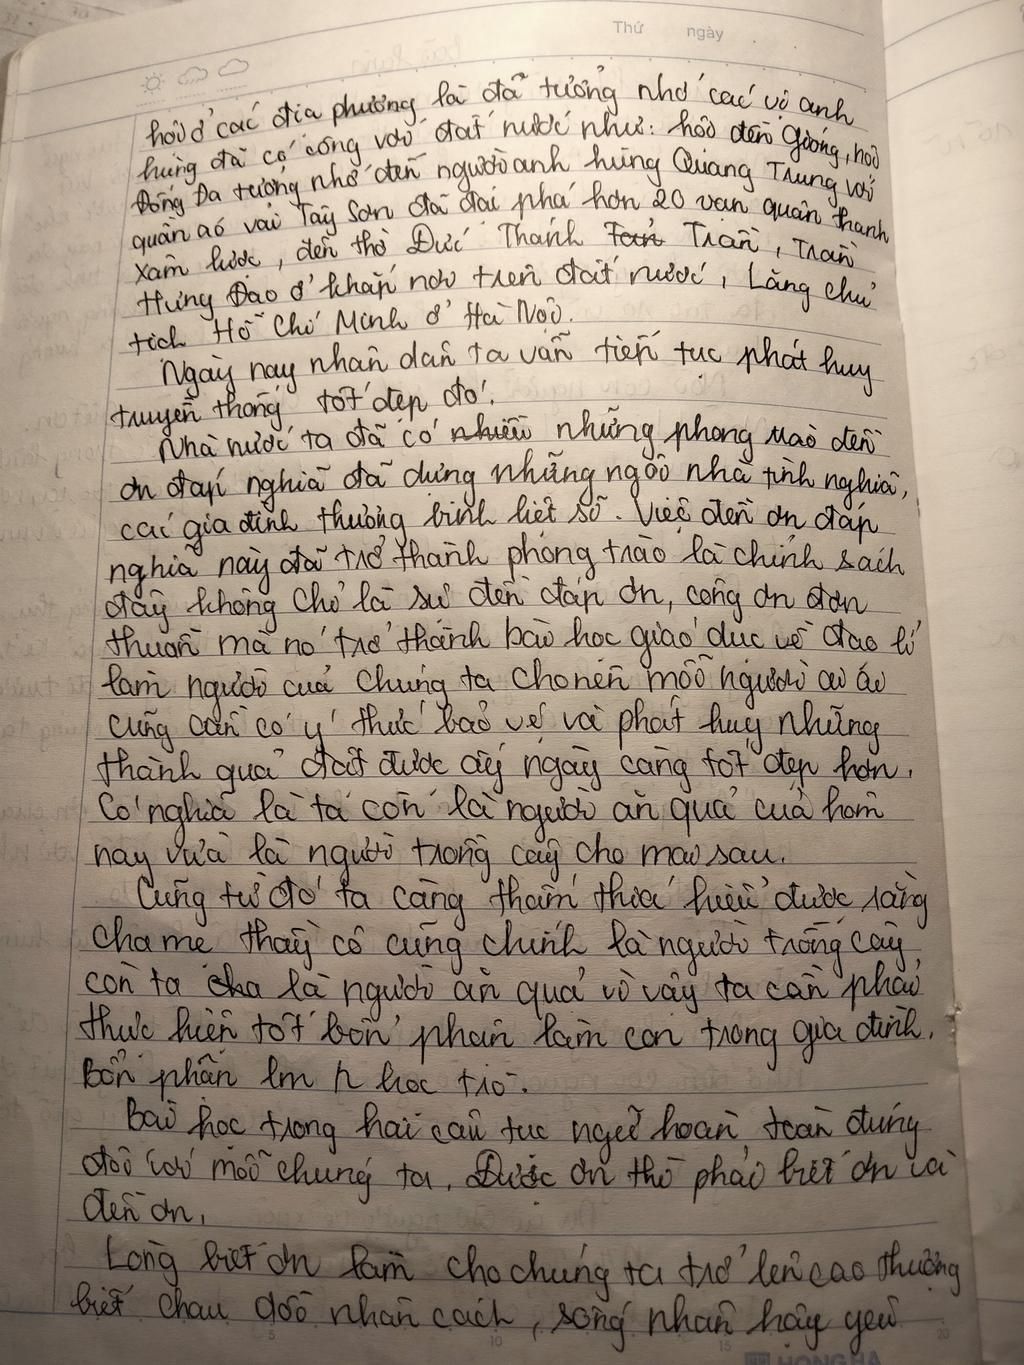 Thứ ngày
hội ở các địa phương là để tưởng nhớ các vị anh
hùng đã có công với đất nước như: hội đền Gióng, hội
Đống Đa tưởng nhớ đến người anh hùng Quang Trung với
quân áo vải Tây Sơn đã đại phá hơn 20 vạn quân thanh
xâm lược, đền thờ Đức Thánh Trần, Trần
Hưng Đạo ở khắp nơi trên đất nước, Lăng chủ
tịch Hồ Chí Minh ở Hà Nội.
Ngày nay nhân dân ta vẫn tiếp tục phát huy
truyền thống tốt đẹp đó.
Nhà nước ta đã có nhiều những phong trào đền
ơn đáp nghĩa đã dựng những ngôi nhà tình nghĩa,
các gia đình thương binh liệt sĩ. Việc đền ơn đáp
nghĩa này đã trở thành phong trào là chính sách
đây không chỉ là sự đền đáp ơn, công ơn đơn
thuần mà nó trở thành bài học giáo dục về đạo lí
làm người của chúng ta cho nên mỗi người ai ai
cũng cần có ý thức bảo vệ và phát huy những
thành quả đạt được ấy ngày càng tốt đẹp hơn.
Có nghĩa là ta còn là người ăn quả của hôm
nay vừa là người trồng cây cho mai sau.
Cũng từ đó ta càng thấm thía hiểu được rằng
cha mẹ thầy cô cũng chính là người trồng cây
còn ta cha là người ăn quả vì vậy ta cần phải
thực hiện tốt bổn phận làm con trong gia đình.
Bổn phận lm h học trò.
Bài học trong hai câu tục ngữ hoàn toàn đúng
đối với mỗi chúng ta. Được ơn thì phải biết ơn và
đền ơn.
Lòng biết ơn làm cho chúng ta trở lên cao thượng
biết chau dồi nhân cách, sống nhân hậu yêu
5 10 15 20
HONG HA